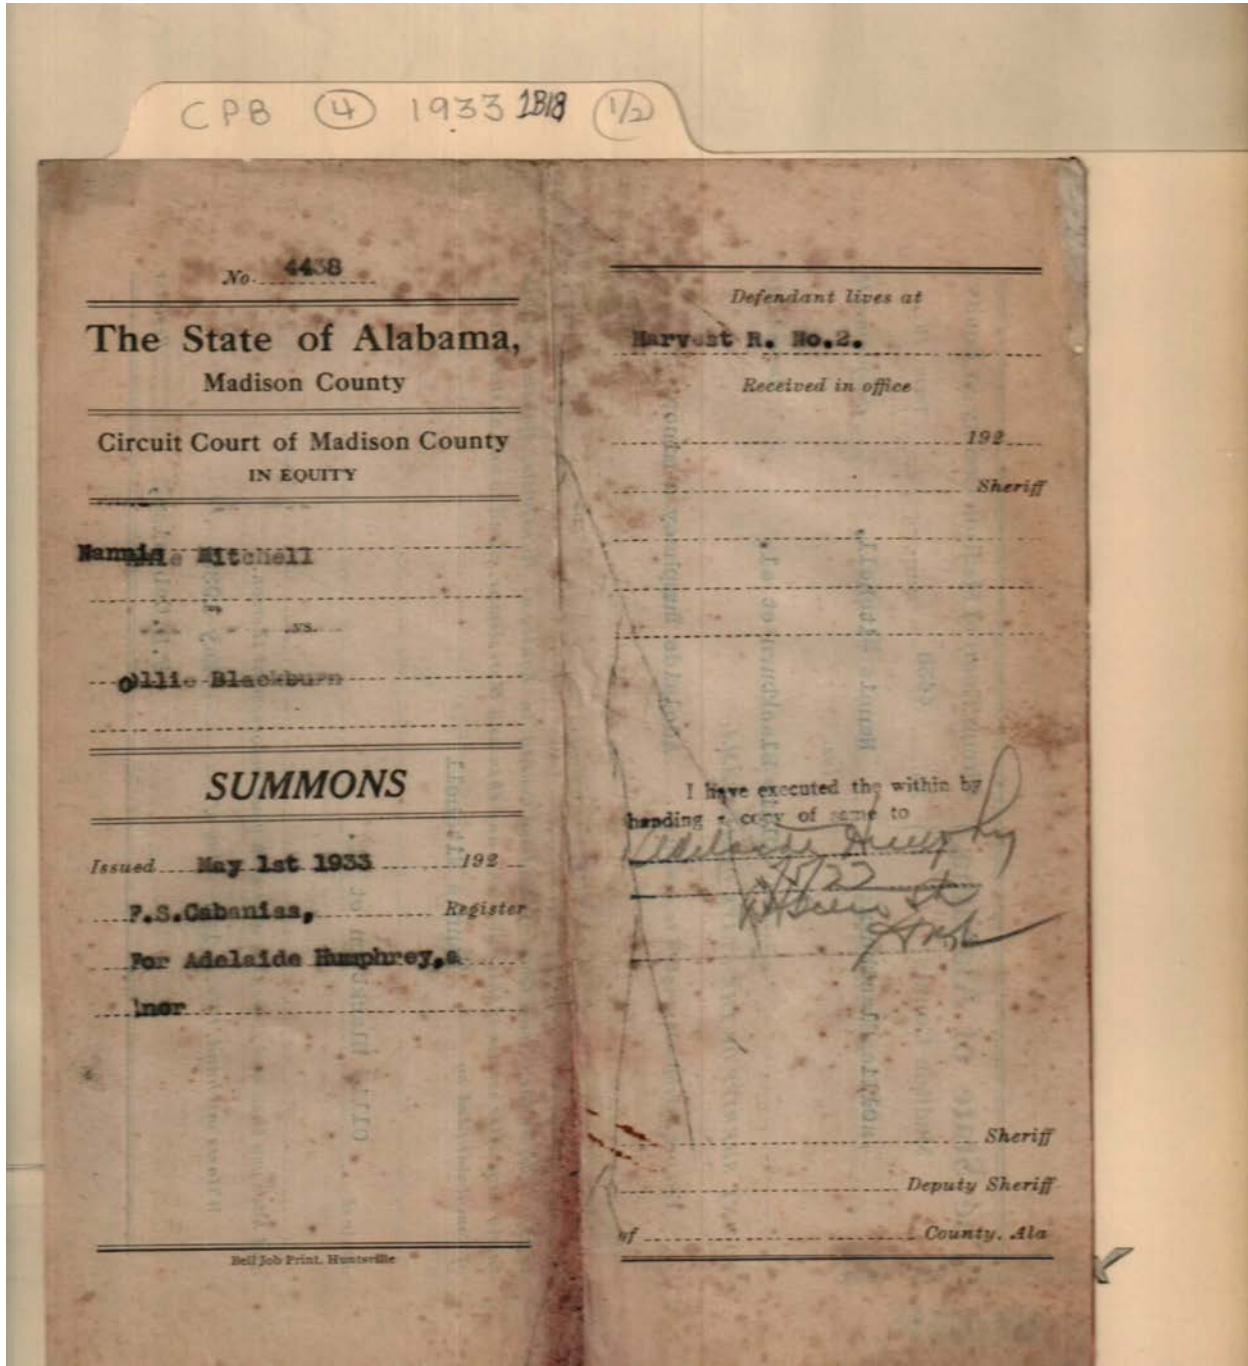 CPB 4 1933 1B18 1/2
No. 4438
The State of Alabama,
Madison County
Circuit Court of Madison County
IN EQUITY
Nannie Mitchell
vs.
Ollie Blackburn
SUMMONS
Issued May 1st 1933 192
F.S.Cabaniss, Register
For Adelaide Humphrey,a
inor
Bell Job Print, Huntsville
Defendant lives at
Harvest R. No.2.
Received in office
192
Sheriff
I have executed the within by
handing a copy of same to
Adelaide Humphry
Sheriff
Deputy Sheriff
of County, Ala